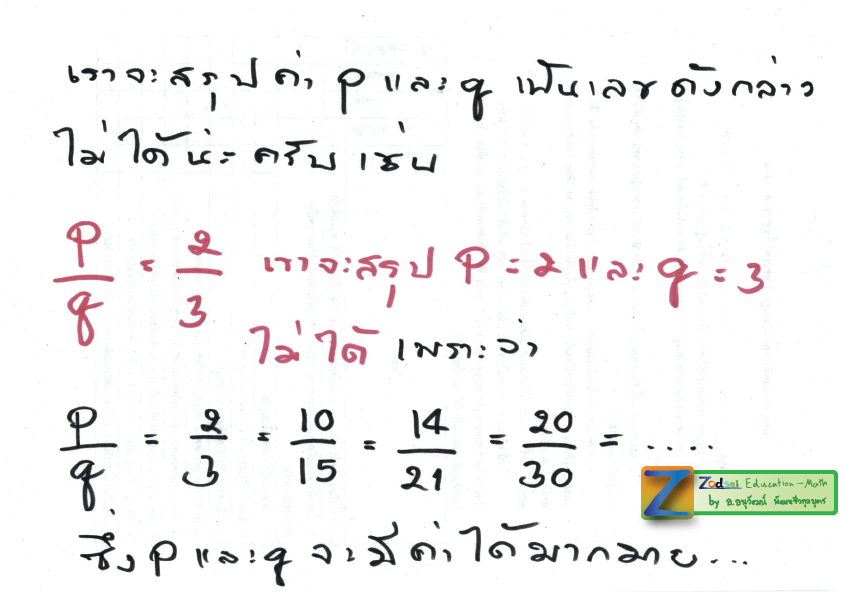 เราจะสรุปค่า p และ q เป็นเลขดังกล่าว
ไม่ได้น่ะครับ เช่น
p/q = 2/3 เราจะสรุป p = 2 และ q = 3
ไม่ได้ เพราะว่า
p/q = 2/3 = 10/15 = 14/21 = 20/30 = .....
ซึ่ง p และ q จะมีค่าได้มากมาย...
Zodsai Education - Math
by อ.อนุวัฒน์